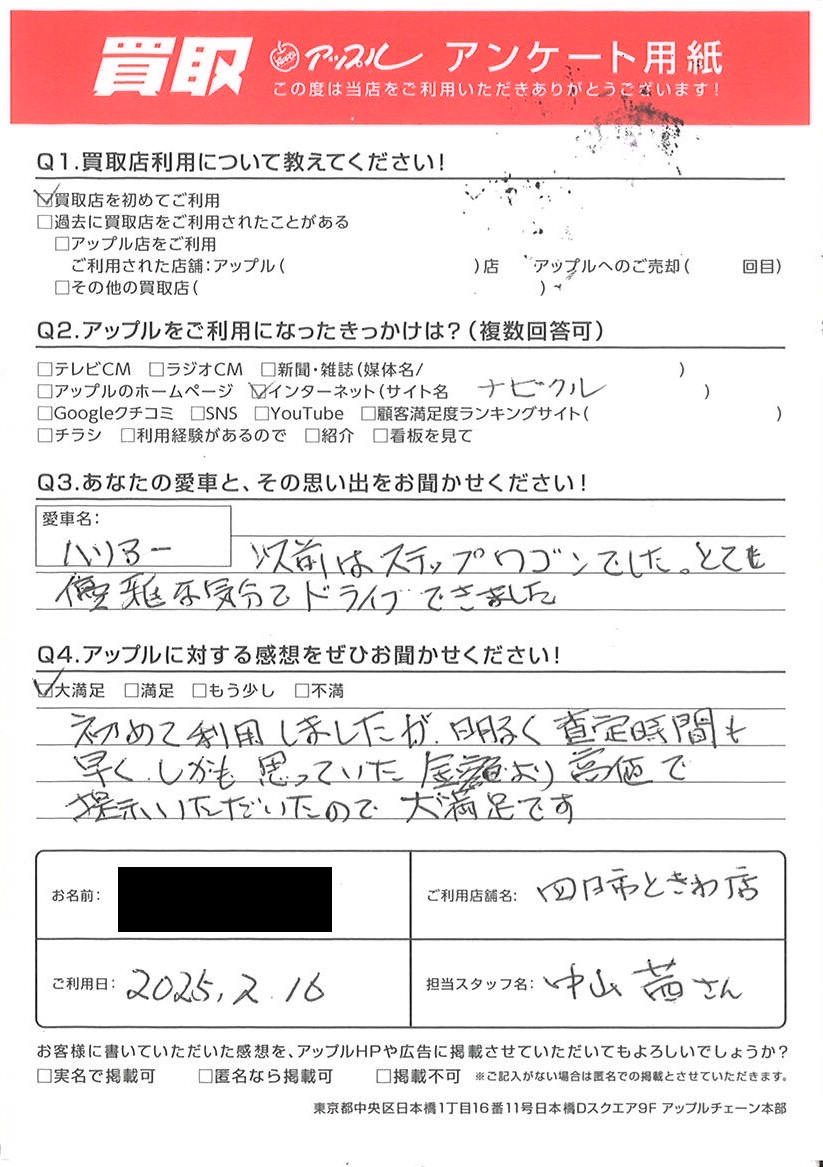 買取 アップル アンケート用紙
この度は当店をご利用いただきありがとうございます!
Q1.買取店利用について教えてください!
☑買取店を初めてご利用
□過去に買取店をご利用されたことがある
□アップル店をご利用
ご利用された店舗:アップル( )店 アップルへのご売却( 回目)
□その他の買取店( )
Q2.アップルをご利用になったきっかけは?(複数回答可)
□テレビCM □ラジオCM □新聞・雑誌(媒体名/ )
□アップルのホームページ ☑インターネット(サイト名 ナビクル )
□Googleクチコミ □SNS □YouTube □顧客満足度ランキングサイト( )
□チラシ □利用経験があるので □紹介 □看板を見て
Q3.あなたの愛車と、その思い出をお聞かせください!
愛車名:
ハリアー 以前はステップワゴンでした。とても
優雅な気分でドライブできました
Q4.アップルに対する感想をぜひお聞かせください!
☑大満足 □満足 □もう少し □不満
初めて利用しましたが、明るく査定時間も
早く、しかも思っていた金額より高価で
提示いただいたので大満足です
お名前: ご利用店舗名: 四日市ときわ店
ご利用日: 2025,2.16 担当スタッフ名: 中山 茜さん
お客様に書いていただいた感想を、アップルHPや広告に掲載させていただいてもよろしいでしょうか?
□実名で掲載可 □匿名なら掲載可 □掲載不可 ※ご記入がない場合は匿名での掲載とさせていただきます。
東京都中央区日本橋1丁目16番11号日本橋Dスクエア9F アップルチェーン本部